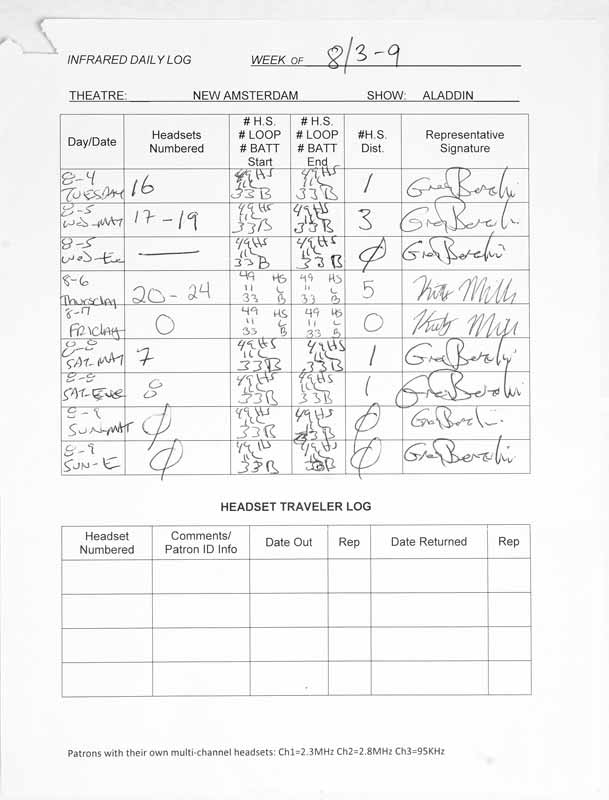 INFRARED DAILY LOG WEEK OF 8/3-9
THEATRE: NEW AMSTERDAM SHOW: ALADDIN
Day/Date Headsets Numbered # H.S. # LOOP # BATT Start # H.S. # LOOP # BATT End #H.S. Dist. Representative Signature
8-4 TUESDAY 16 49HS 11L 33B 49HS 11L 33B 1
8-5 WED-MAT 17-19 49HS 11L 33B 49HS 11L 33B 3
8-5 WED-EVE — 49HS 11L 33B 49HS 11L 33B Ø
8-6 Thursday 20-24 49 HS 11 L 33 B 49 HS 11 L 33 B 5
8-7 FRIDAY 0 49 HS 11 L 33 B 49 HS 11 L 33 B 0
8-8 SAT-MAT 7 49HS 11L 33B 49HS 11L 33B 1
8-8 SAT-EVE 8 49HS 11L 33B 49HS 11L 33B 1
8-9 SUN-MAT Ø 49HS 11L 33B 49HS 11L 33B Ø
8-9 SUN-E Ø 49HS 11L 33B 49HS 11L 33B Ø
HEADSET TRAVELER LOG
Headset Numbered Comments/ Patron ID Info Date Out Rep Date Returned Rep
Patrons with their own multi-channel headsets: Ch1=2.3MHz Ch2=2.8MHz Ch3=95KHz